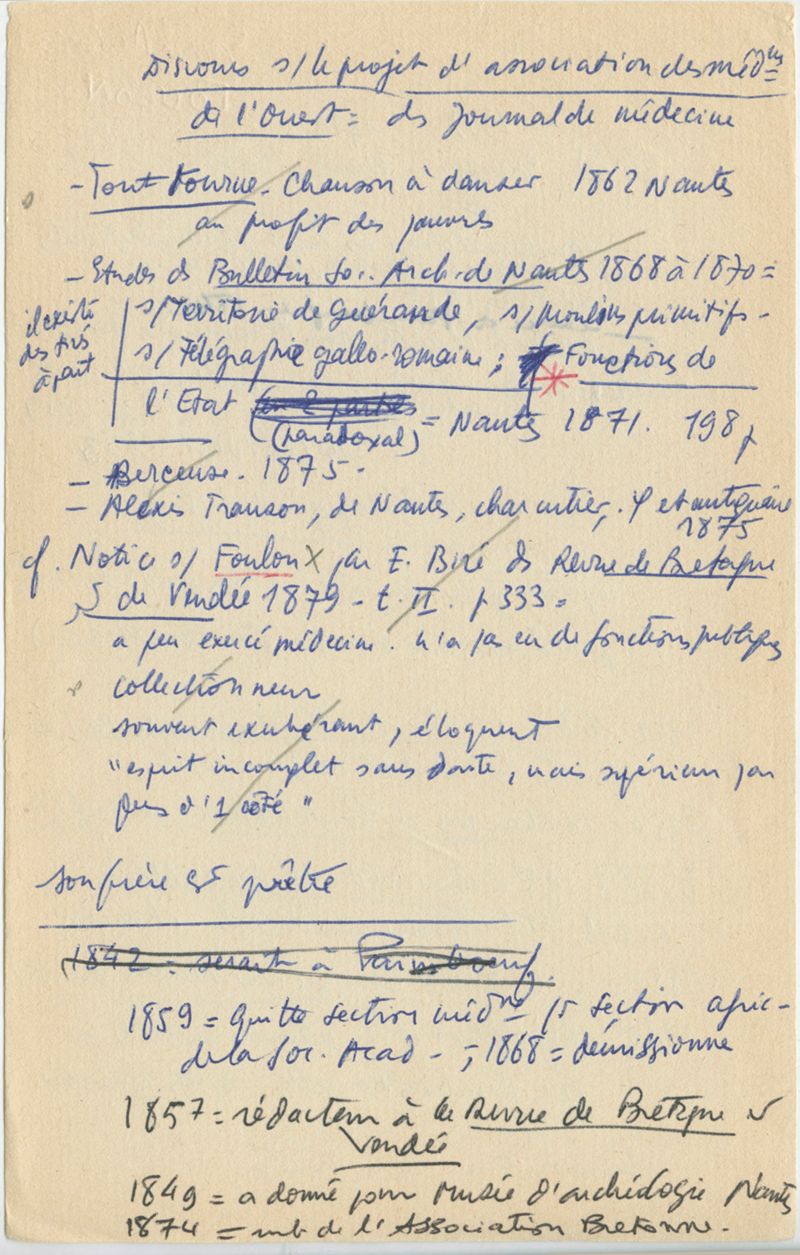 Discours s/ le projet d'association des méd^ins
de l'Ouest = ds Journal de médecine
- Tout tourne. Chanson à danser 1862 Nantes
au profit des pauvres
- Etudes ds Bulletin Soc. Arch. de Nantes 1868 à 1870 =
il existe des tirés à part
s/ Territoire de Guérande, s/ moulins primitifs -
s/ Télégraphie gallo-romaine ; * Fonctions de
l'Etat (en 2 parties)
(paradoxal) = Nantes 1871. 198 p
- Berceuse. 1875 -
- Alexis Transon, de Nantes, charcutier, et antiquaire
1875
cf. Notice s/ Foulon X par E. Biré ds Revue de Bretagne
& de Vendée 1879 - t. II. p 333 =
a peu exercé médecine. n'a pas eu de fonctions publiques
collectionneur
souvent exubérant, éloquent
"esprit incomplet sans doute, mais supérieur par
plus d'1 côté"
son frère est prêtre
1842 = serait à Paimboeuf
1859 = quitte section méd^ne pr section agric-
de la Soc. Acad - ; 1868 = démissionne
1857 = rédacteur à la Revue de Bretagne &
Vendée
1849 = a donné pour Musée d'archéologie Nantes
1874 = mb de l'Association Bretonne.